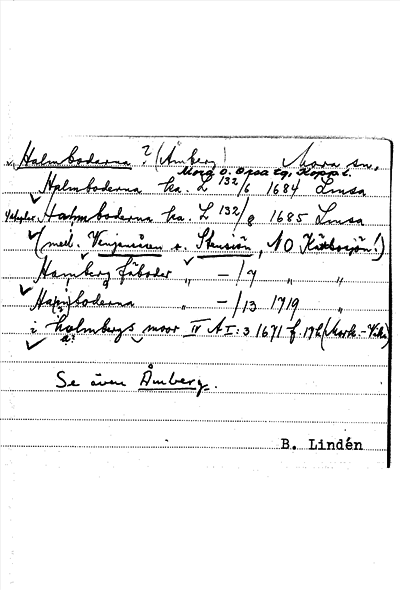 Halmboderna ? (Åmberg) Mora sn,
Mora o. Orsa tg, Kopp. l.
Halmboderna ka. L 132/6 1684 Lmsa
Hahmboderna ka. L 132/8 1685 Lmsa
(med. Venjansåen o. Stensiön, NO
Hamberg fäboder " – /7 " "
Hamboderna – /13 1719 "
i holmbergs moor IV A I:3 1671 f. 17
Se även Åmberg.
B. Lindén